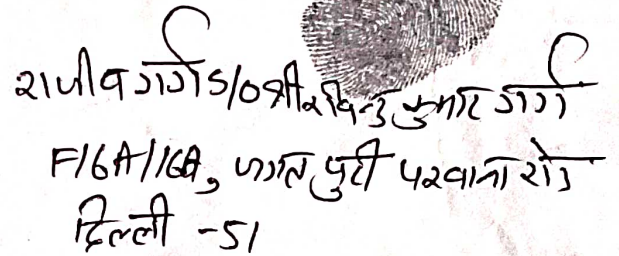 राजीव गर्ग S/O श्री रविन्द्र कुमार गर्ग
F/6A/16A, जगत पुरी परवाना रोड
दिल्ली -51